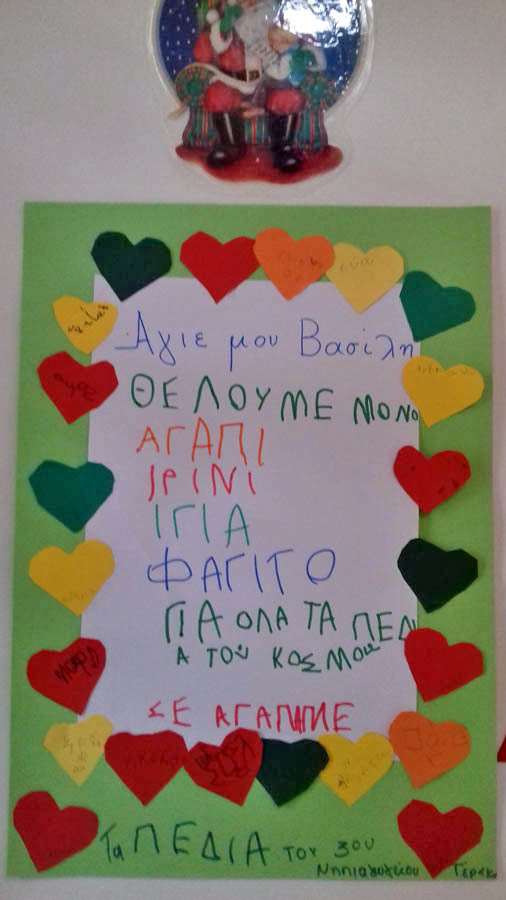 Άγιε μου Βασίλη
ΘΕΛΟΥΜΕ ΜΟΝΟ
ΑΓΑΠΙ
ΙΡΙΝΙ
ΙΓΙΑ
ΦΑΓΙΤΟ
ΓΙΑ ΟΛΑ ΤΑ ΠΕΔΙ
Α ΤΟΥ ΚΟΣΜΟυ
ΣΕ ΑΓΑΠΑΜΕ
Τα ΠΕΔΙΑ ΤΟΥ 3ΟΥ
Νηπιαγωγείου Γέρακα